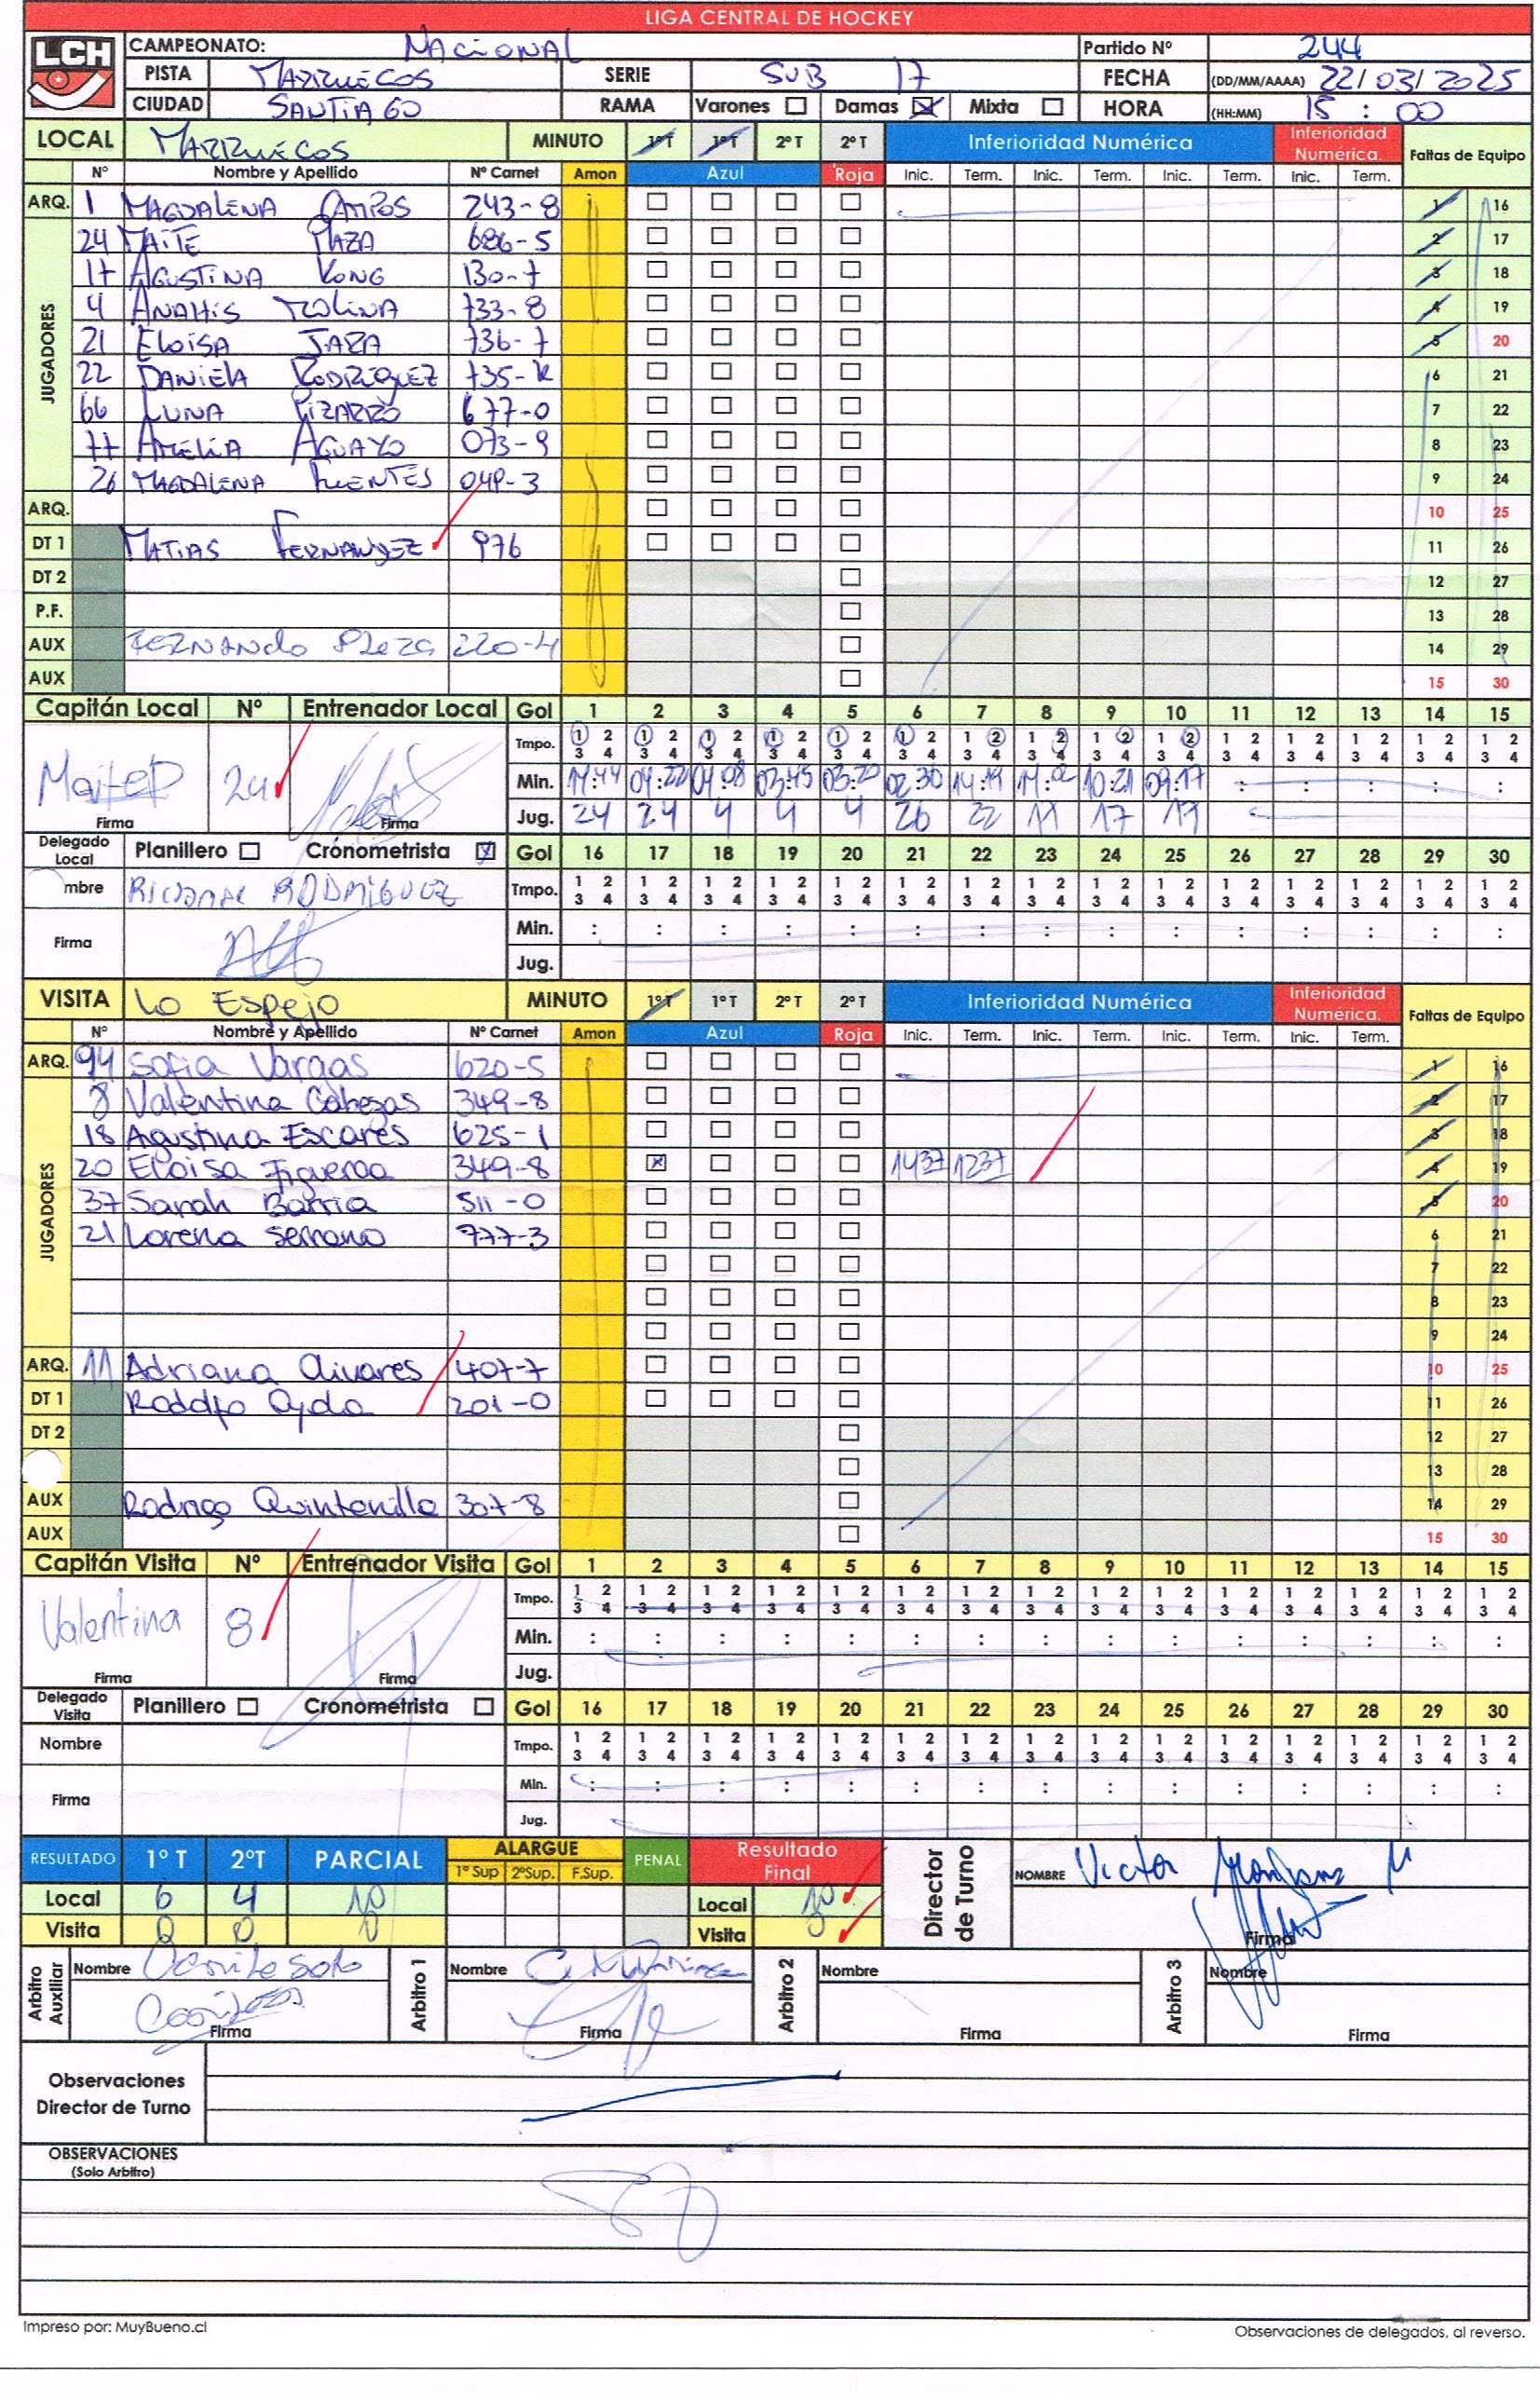 LIGA CENTRAL DE HOCKEY
LCH
CAMPEONATO: NACIONAL Partido Nº 244
PISTA MARRUECOS SERIE SUB 17 FECHA (DD/MM/AAAA) 22/03/2025
CIUDAD SANTIAGO RAMA Varones Damas Mixta HORA (HH:MM) 15:00
LOCAL MARRUECOS MINUTO 1º T 1º T 2º T 2º T Inferioridad Numérica Inferioridad Numérica. Faltas de Equipo
Nº Nombre y Apellido Nº Carnet Amon Azul Roja Inic. Term. Inic. Term. Inic. Term. Inic. Term.
ARQ. 1 MAGDALENA CAMPOS 243-8 1 16
JUGADORES
24 MAITE PLAZA 686-5 2 17
17 AGUSTINA KONG 130-7 3 18
4 ANAHIS MOLINA 733-8 4 19
21 ELOISA JARA 736-7 5 20
22 DANIELA RODRIGUEZ 735-K 6 21
66 LUNA PIZARRO 677-0 7 22
77 AMELIA AGUAYO 073-9 8 23
26 MAGDALENA FUENTES 049-3 9 24
ARQ. 10 25
DT 1 MATIAS FERNANDEZ 976 11 26
DT 2 12 27
P.F. 13 28
AUX FERNANDO PLAZA 220-4 14 29
AUX 15 30
Capitán Local Nº Entrenador Local Gol 1 2 3 4 5 6 7 8 9 10 11 12 13 14 15
Tmpo. 1 2 1 2 1 2 1 2 1 2 1 2 1 2 1 2 1 2 1 2 1 2 1 2 1 2 1 2 1 2
3 4 3 4 3 4 3 4 3 4 3 4 3 4 3 4 3 4 3 4 3 4 3 4 3 4 3 4 3 4
MaiteP 24 Min. 17:44 04:22 04:08 03:45 03:20 02:30 14:19 11:02 10:21 09:17 : : : : :
Firma Firma Jug. 24 24 4 4 4 26 22 17 17 17
Delegado Local Planillero Crónometrista Gol 16 17 18 19 20 21 22 23 24 25 26 27 28 29 30
mbre RODRIGUEZ Tmpo. 1 2 1 2 1 2 1 2 1 2 1 2 1 2 1 2 1 2 1 2 1 2 1 2 1 2 1 2 1 2
3 4 3 4 3 4 3 4 3 4 3 4 3 4 3 4 3 4 3 4 3 4 3 4 3 4 3 4 3 4
Firma Min. : : : : : : : : : : : : : : :
Jug.
VISITA Lo Espejo MINUTO 1º T 1º T 2º T 2º T Inferioridad Numérica Inferioridad Numérica. Faltas de Equipo
Nº Nombre y Apellido Nº Carnet Amon Azul Roja Inic. Term. Inic. Term. Inic. Term. Inic. Term.
ARQ. 94 Sofia Vargas 620-5 1 16
JUGADORES
8 Valentina Cabezas 349-8 2 17
18 Agustina Escares 625-1 3 18
20 Eloisa Figueroa 349-8 1437 1237 4 19
37 Sarah Barria 511-0 5 20
21 Lorena Serrano 977-3 6 21
7 22
8 23
9 24
ARQ. 11 Adriana Olivares 407-7 10 25
DT 1 Rodolfo Ojeda 201-0 11 26
DT 2 12 27
13 28
AUX Rodrigo Quintanilla 307-8 14 29
AUX 15 30
Capitán Visita Nº Entrenador Visita Gol 1 2 3 4 5 6 7 8 9 10 11 12 13 14 15
Tmpo. 1 2 1 2 1 2 1 2 1 2 1 2 1 2 1 2 1 2 1 2 1 2 1 2 1 2 1 2 1 2
3 4 3 4 3 4 3 4 3 4 3 4 3 4 3 4 3 4 3 4 3 4 3 4 3 4 3 4 3 4
Valentina 8 Min. : : : : : : : : : : : : : : :
Firma Firma Jug.
Delegado Visita Planillero Cronometrista Gol 16 17 18 19 20 21 22 23 24 25 26 27 28 29 30
Nombre Tmpo. 1 2 1 2 1 2 1 2 1 2 1 2 1 2 1 2 1 2 1 2 1 2 1 2 1 2 1 2 1 2
3 4 3 4 3 4 3 4 3 4 3 4 3 4 3 4 3 4 3 4 3 4 3 4 3 4 3 4 3 4
Firma Min. : : : : : : : : : : : : : : :
Jug.
RESULTADO 1º T 2ºT PARCIAL ALARGUE 1º Sup 2ºSup. F.Sup. PENAL Resultado Final Director de Turno NOMBRE Victor M
Local 6 4 10 Local 10
Visita 0 0 0 Visita 0 Firma
Arbitro Auxiliar Nombre Camila Soto Arbitro 1 Nombre Arbitro 2 Nombre Arbitro 3 Nombre
Firma Firma Firma Firma
Observaciones
Director de Turno
OBSERVACIONES
(Solo Arbitro)
Impreso por: MuyBueno.cl Observaciones de delegados, al reverso.